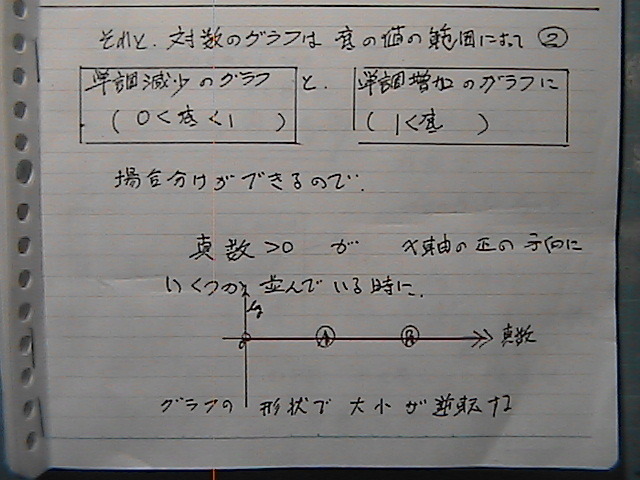 それと、対数のグラフは 底の値の範囲によって ②
単調減少のグラフ と、 単調増加のグラフに
( 0<底<1 ) ( 1<底 )
場合分けができるので、
真数>0 が x軸の正の方向に
いくつか 並んでいる時に、
y
0 A B 真数
グラフの 形状で 大小が逆転する